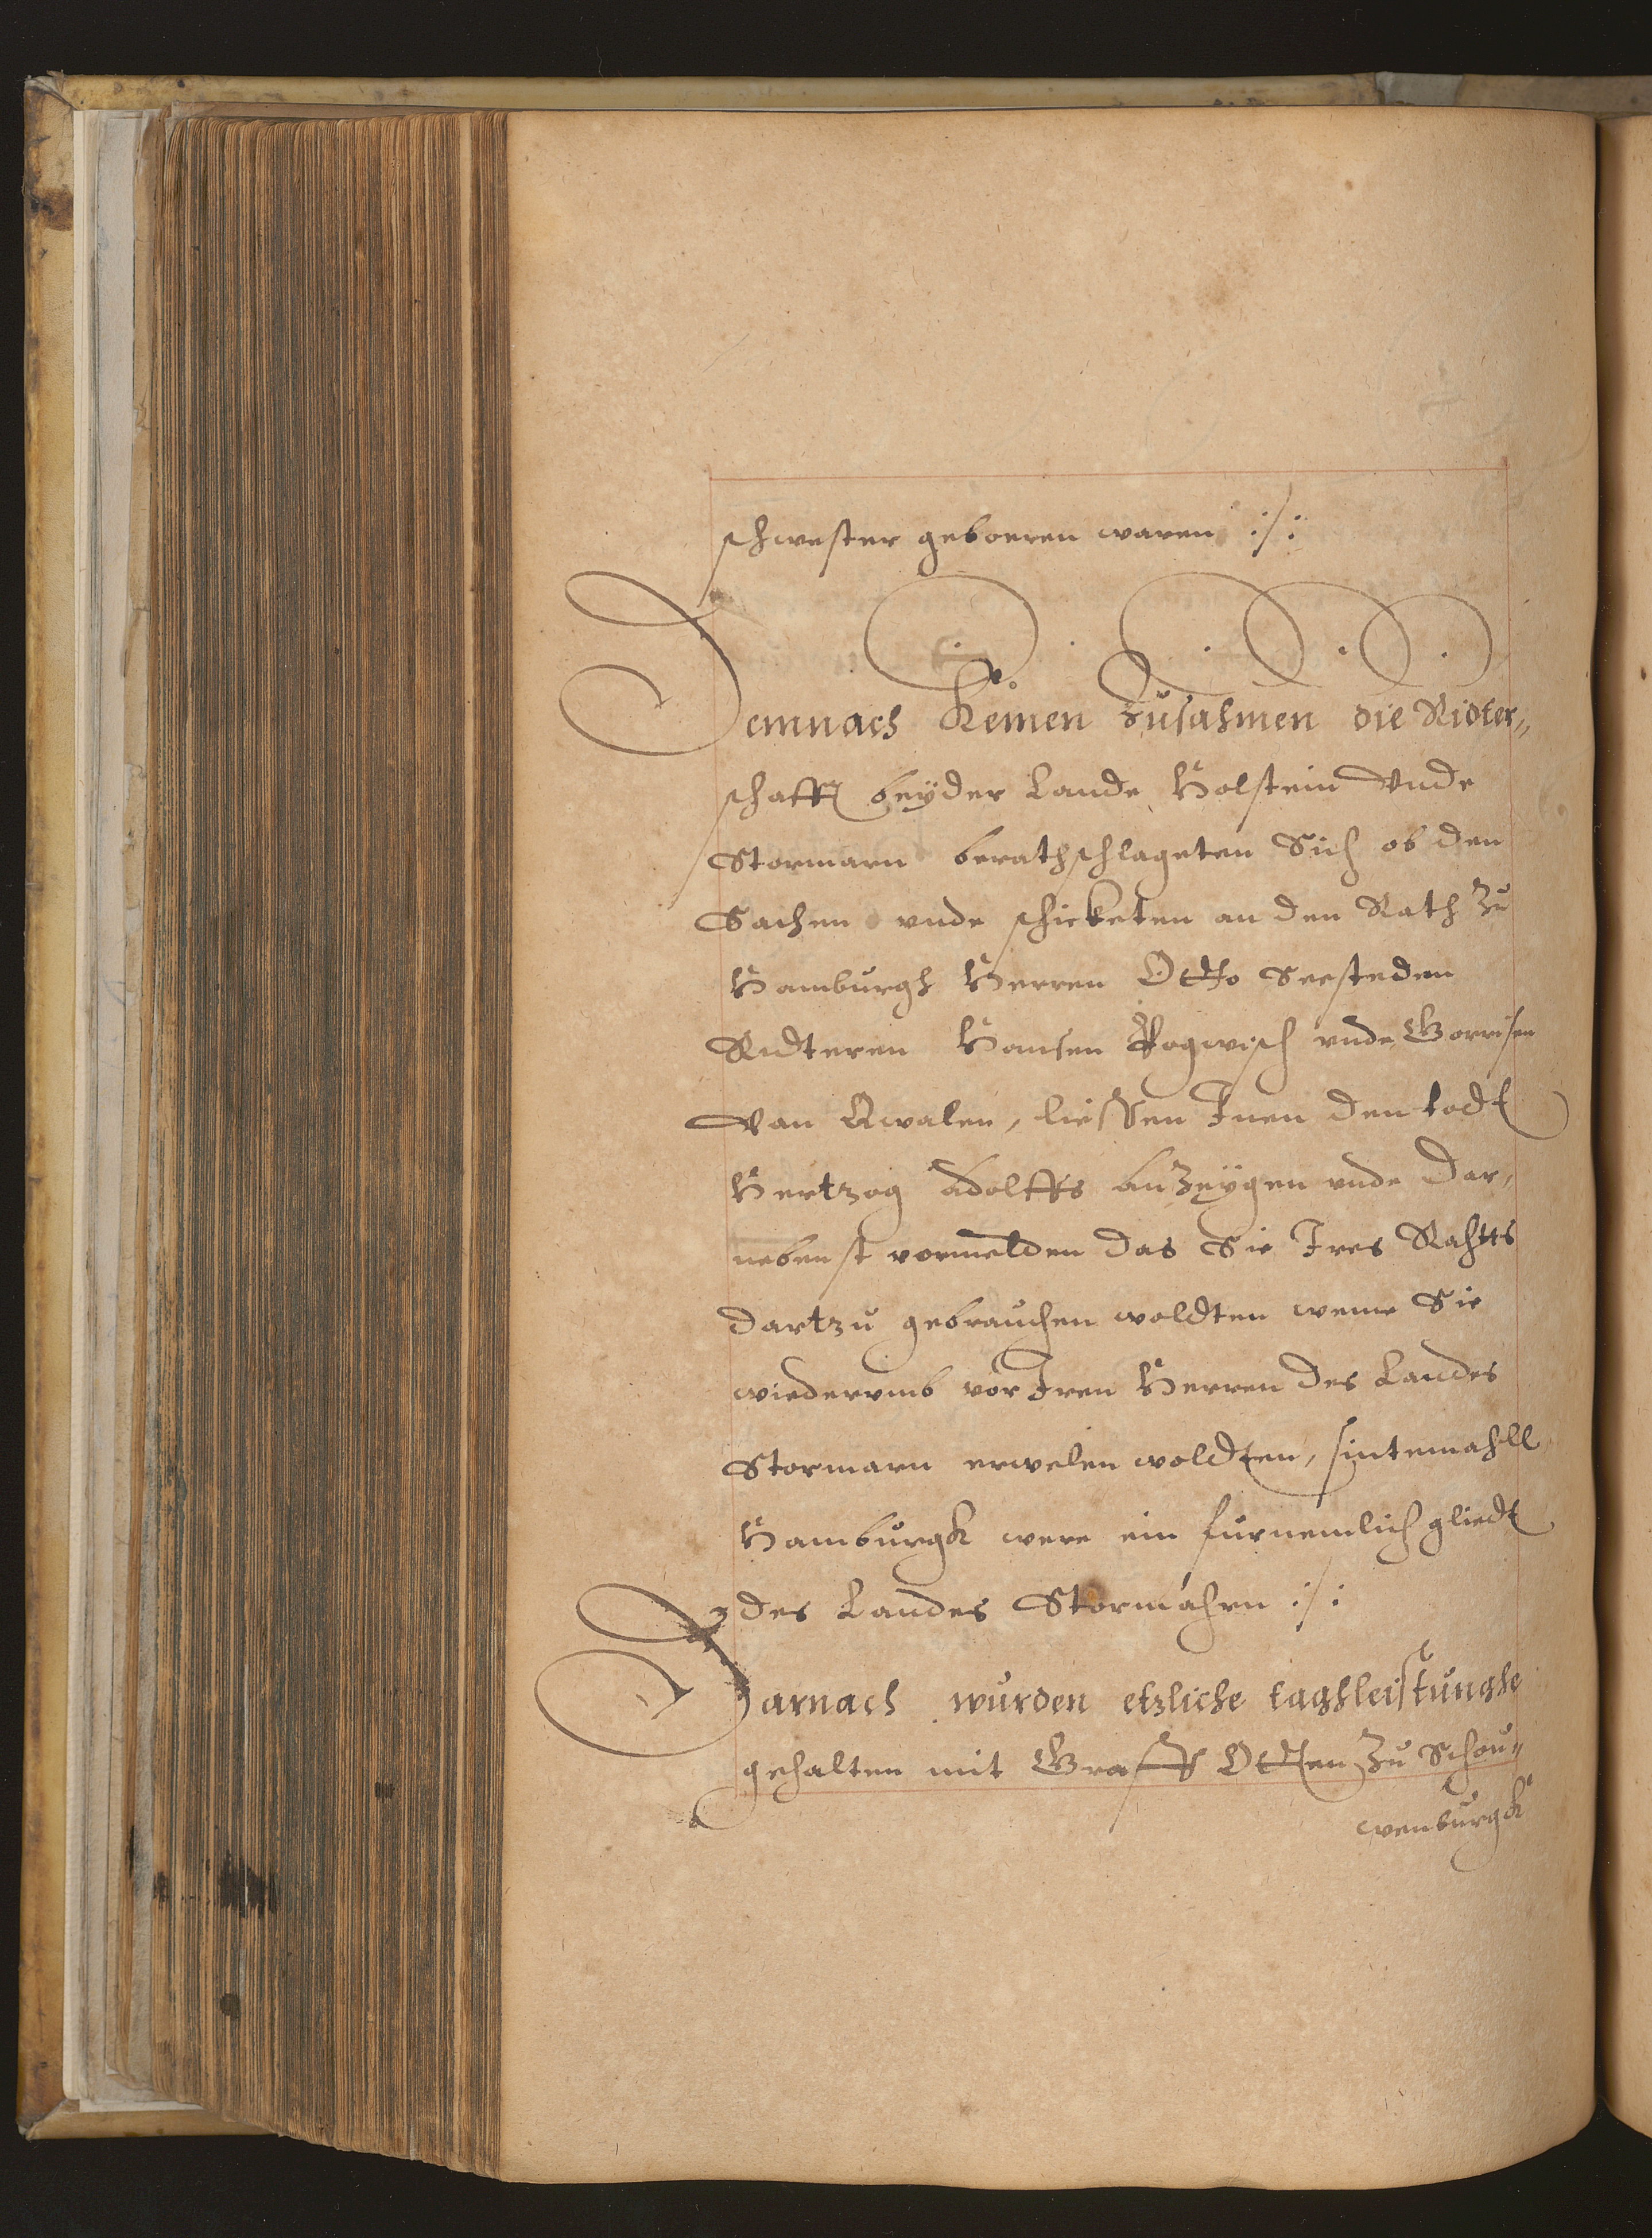 schwester geboeren waren :/:
Demnach Kemen zusahmen die Ridter„
schafft beyder Lande Holstein Vnde
Stormarn berathschlageten Sich ob den
Sachen vnde schicketen an den Rath zu
Hamburgh Herren Otto Seesteden
Ridteren Hansen Pogwisch vnde Gorrisen
Van Qwalen, liessen Inen den todt
Hertzog Adolffs anzeygen vnde dar,
nebenst vormelden das Sie Ires Rahtts
dartzu gebrauchen woldten weme Sie
wiederumb vor Iren Herren des Landes
Stormarn erwelen woldten, sintemahll
Hamburgk were ein furnemlich gliedt
des Landes Stormahrn :/:
Darnach wurden etzliche taghleistunghe
gehalten mit Graff Otten zu Schou„
wenburgk